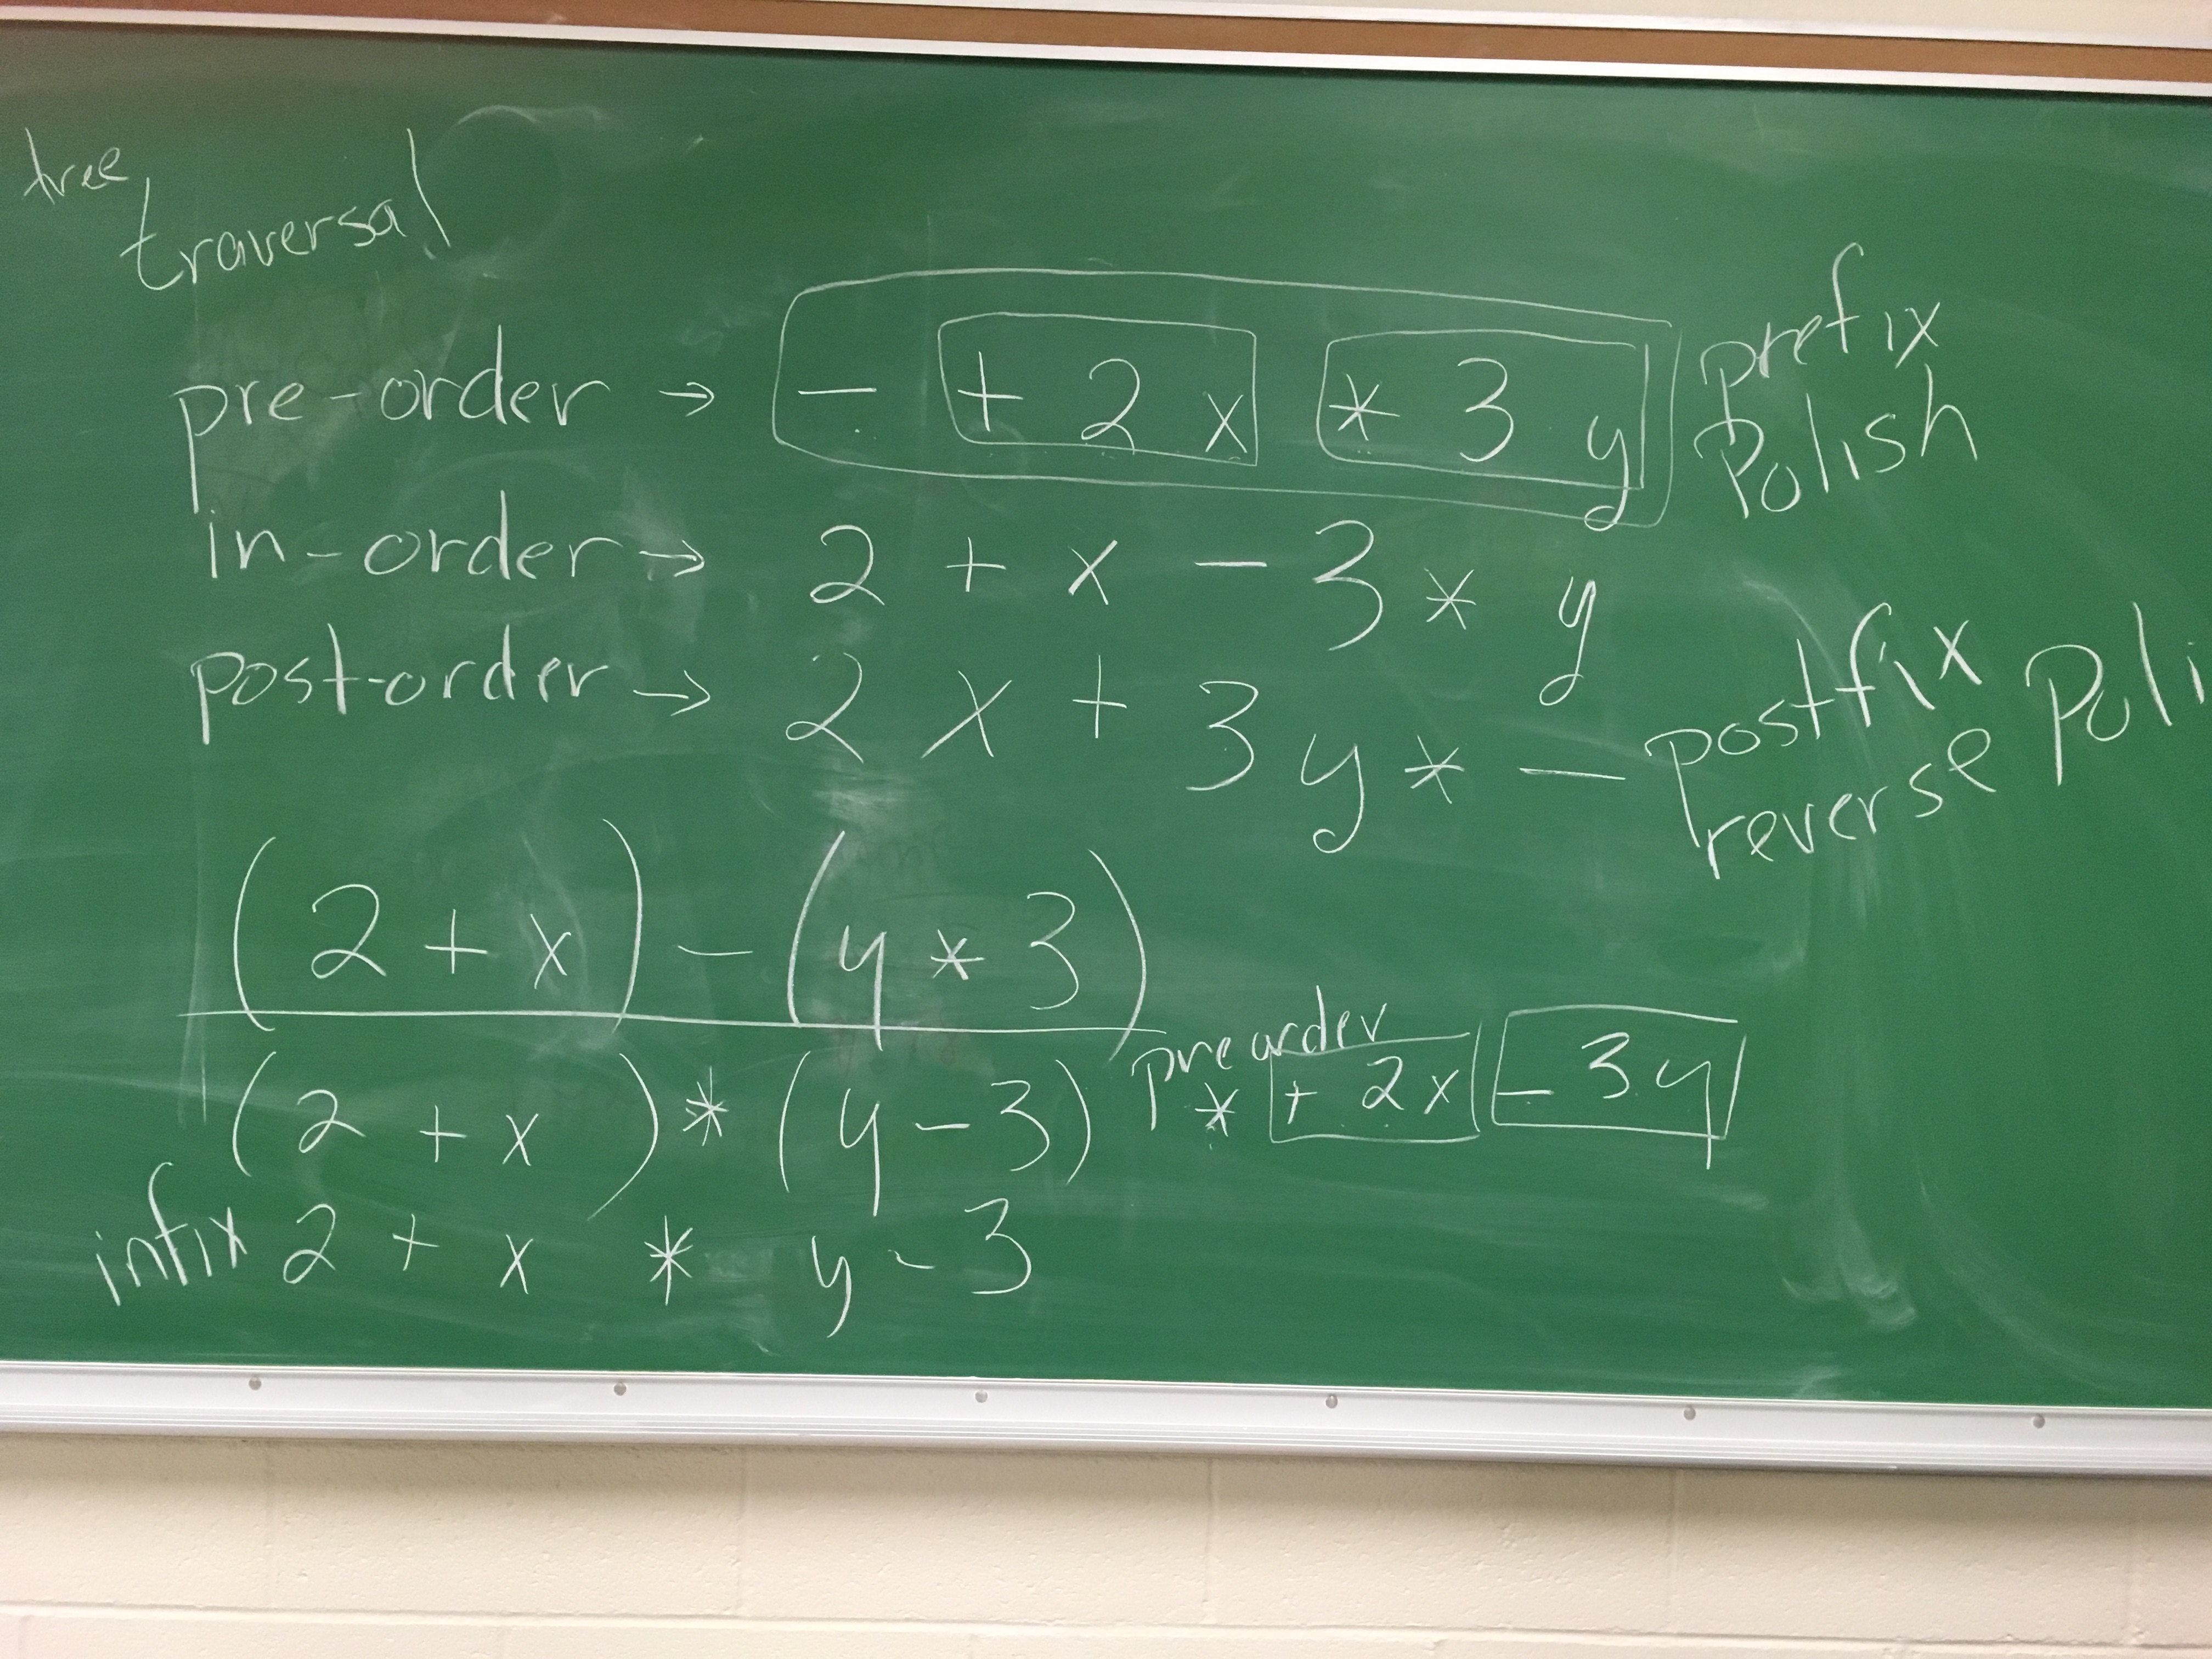 tree traversal
pre-order → - + 2 x * 3 y prefix Polish
in-order → 2 + x - 3 * y
post-order → 2 x + 3 y * - postfix reverse Poli
(2 + x) - (y * 3)
(2 + x) * (y - 3) preorder * + 2 x - 3 y
infix 2 + x * y - 3